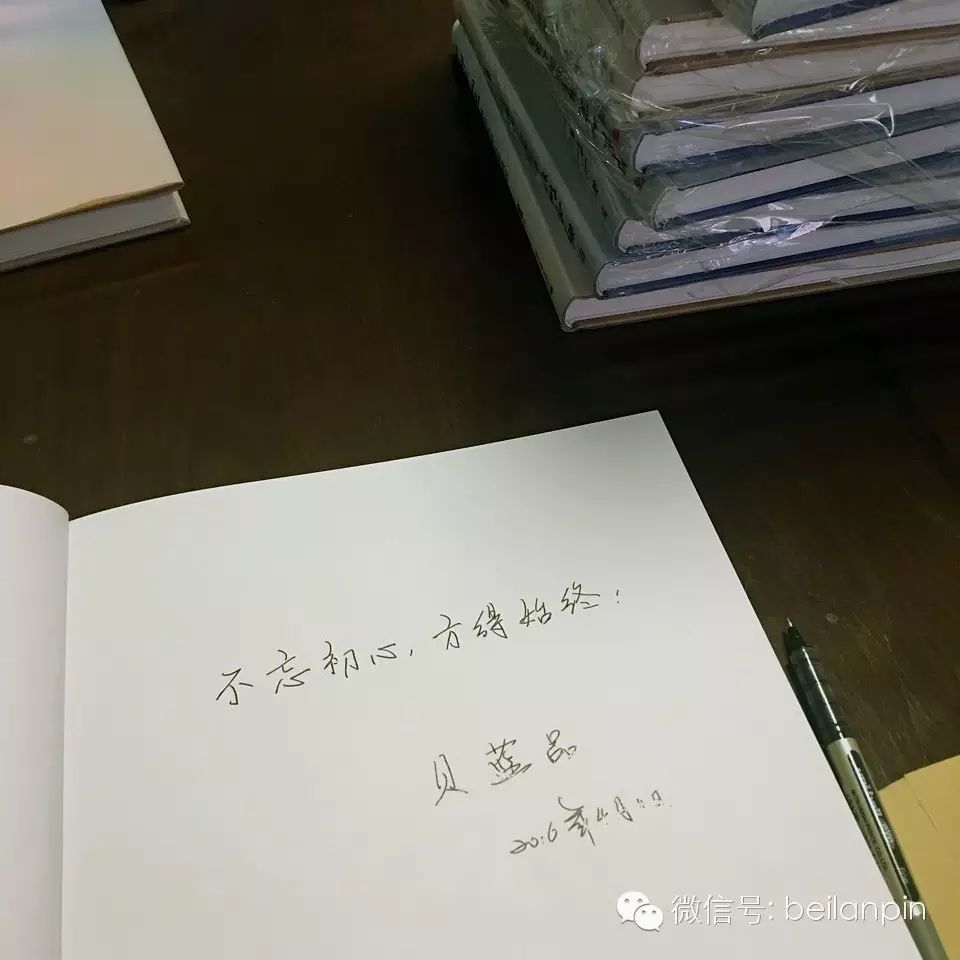 不忘初心,方得始终!
贝蓝品
2016年4月
微信号: beilanpin